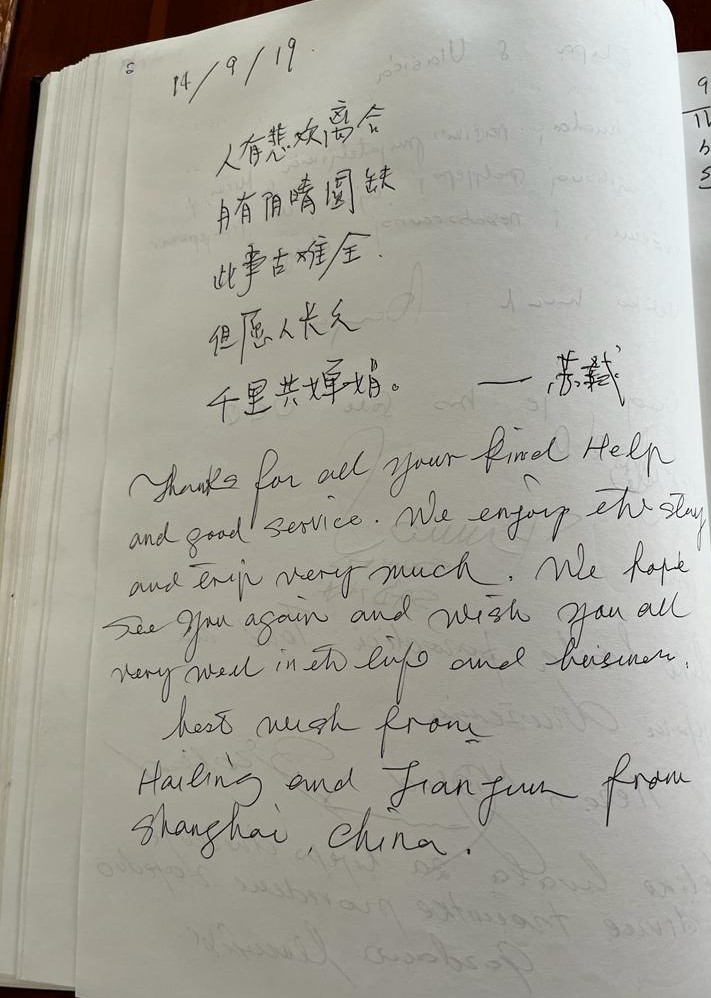 14/9/19.
人有悲欢离合
月有阴晴圆缺
此事古难全.
但愿人长久
千里共婵娟。 — 苏轼
Thanks for all your kind Help
and good service. We enjoy the stay
and trip very much. We hope
see you again and wish you all
very well in the life and business.
best wish from
Hailing and Jianjun from
Shanghai, China.